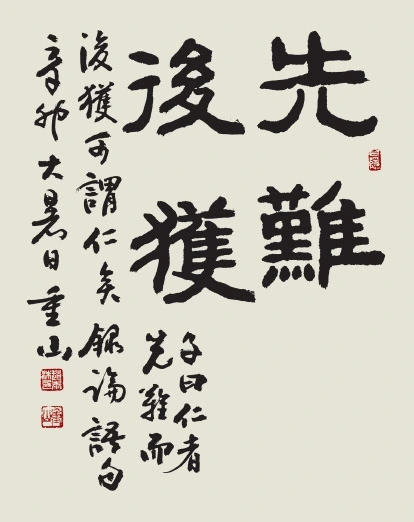 先難
後獲
子曰仁者
先難而
後獲可謂仁矣錄論語句
辛卯大暑日重山